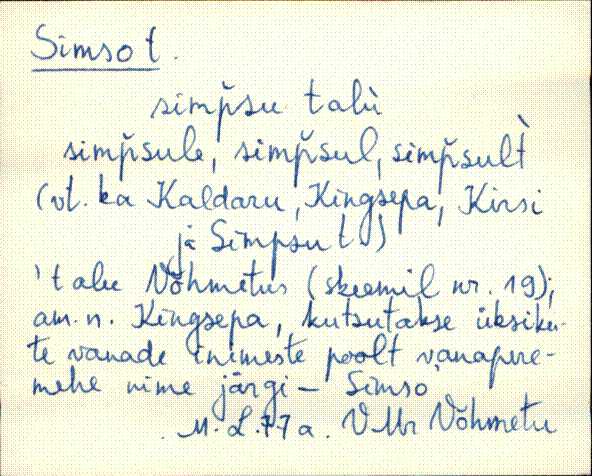 Simso t.
simp̆su talù
simp̆sule, simp̆sul, simp̆sult̀
(vt. ka Kaldaru, Kingsepa, Kirsi
ja Simpsu t.)
'talu Võhmetus (skeemil nr. 19);
am. n. Kingsepa, kutsutakse üksiku-
te vanade inimeste poolt vanapere-
mehe nime järgi – Simso'
M. L. 77 a. VMr Võhmetu